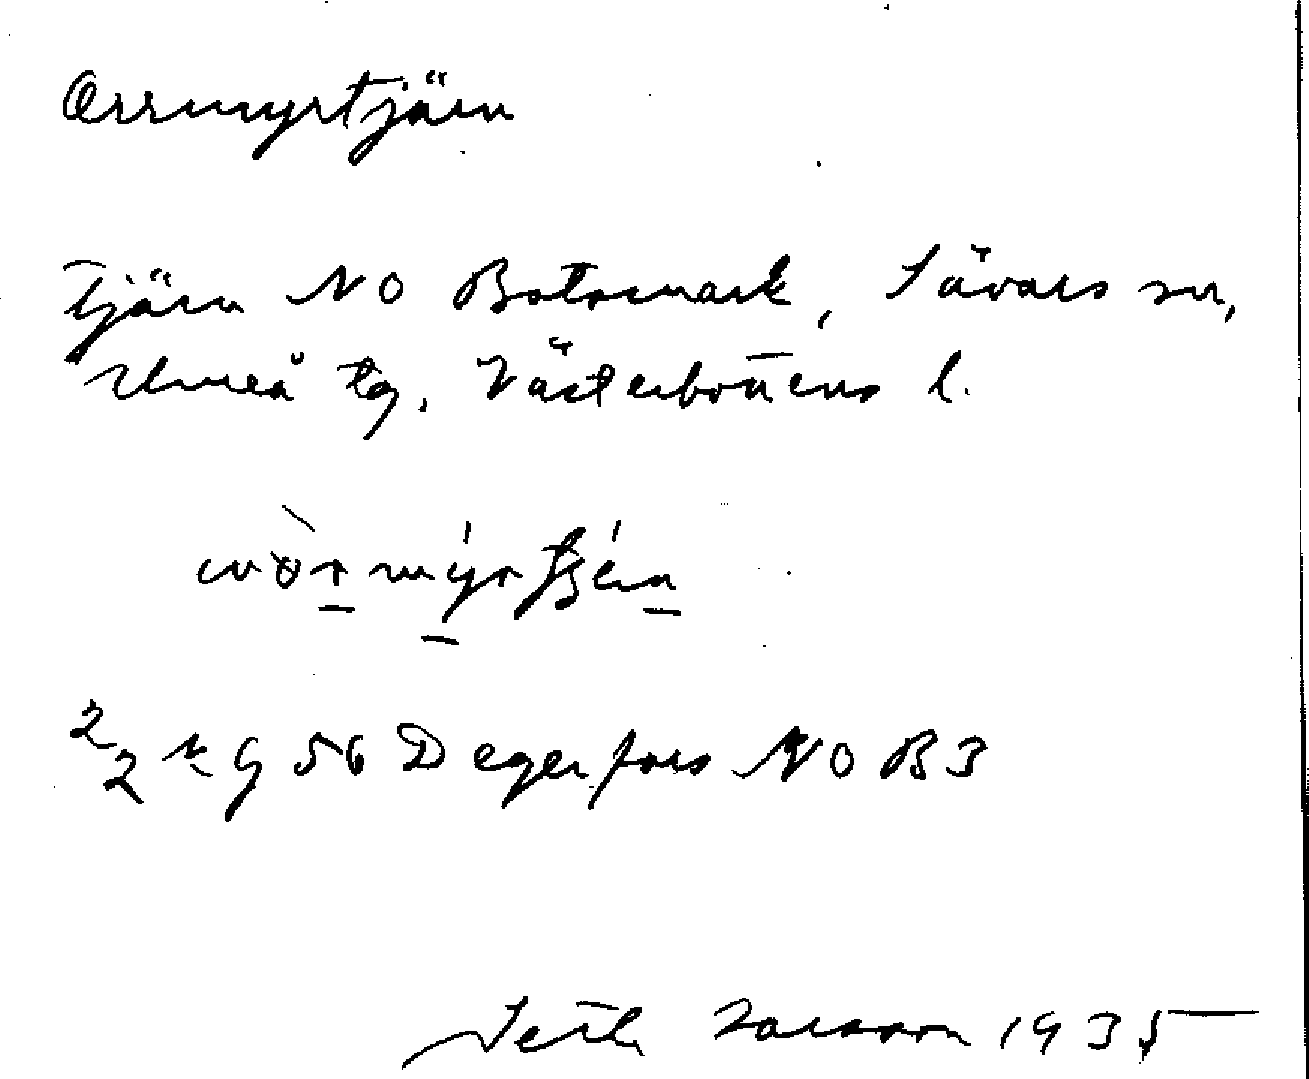 Orrmyrtjärn
Tjärn NO Botsmark, Sävars sn,
Umeå tg, Västerbottens l.
2/2 kg 56 Degerfors NO B3
Seth Larsson 1935